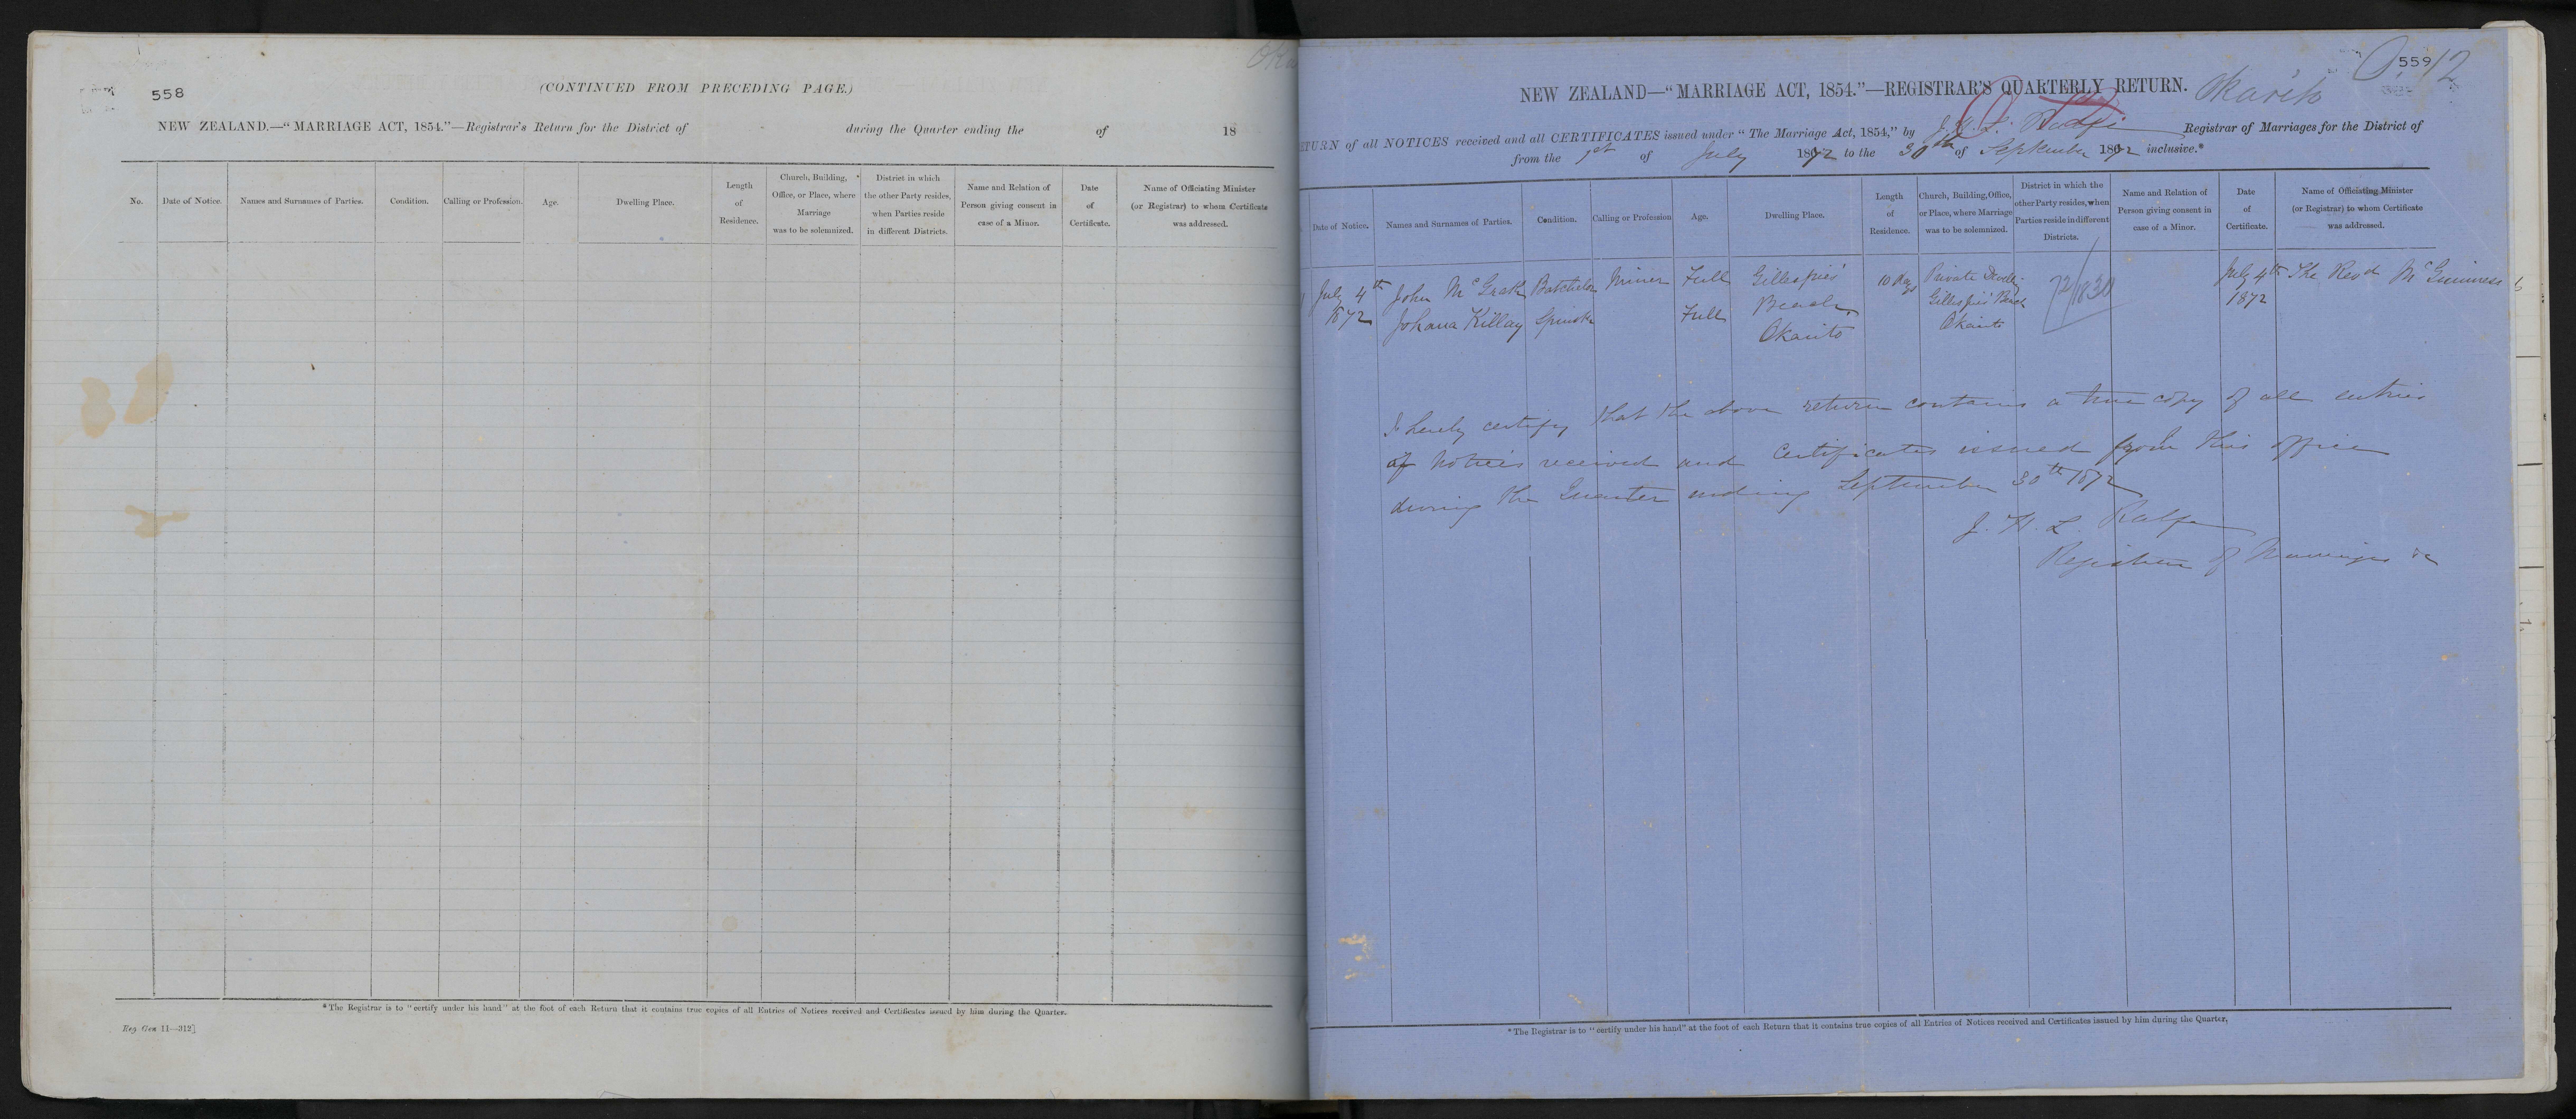 558
(CONTINUED FROM PRECEDING PAGE.)
NEW ZEALAND.—"MARRIAGE ACT, 1854."—Registrar's Return for the District of during the Quarter ending the of 18
No. Date of Notice. Names and Surnames of Parties. Condition. Calling or Profession. Age. Dwelling Place. Length of Residence. Church, Building, Office, or Place, where Marriage was to be solemnized. District in which the other Party resides, when Parties reside in different Districts. Name and Relation of Person giving consent in case of a Minor. Date of Certificate. Name of Officiating Minister (or Registrar) to whom Certificate was addressed.
*The Registrar is to "certify under his hand" at the foot of each Return that it contains true copies of all Entries of Notices received and Certificates issued by him during the Quarter.
Reg Gen 11—312]
559
12
NEW ZEALAND—"MARRIAGE ACT, 1854."—REGISTRAR'S QUARTERLY RETURN.
Okarito
RETURN of all NOTICES received and all CERTIFICATES issued under "The Marriage Act, 1854," by J. H. L. Registrar of Marriages for the District of
from the 1st of July 1872 to the 30th of September 1872 inclusive.*
Date of Notice. Names and Surnames of Parties. Condition. Calling or Profession Age. Dwelling Place. Length of Residence. Church, Building, Office, or Place, where Marriage was to be solemnized. District in which the other Party resides, when Parties reside in different Districts. Name and Relation of Person giving consent in case of a Minor. Date of Certificate. Name of Officiating Minister (or Registrar) to whom Certificate was addressed.
1 July 4th John McGrath Batchelor Miner Full Gillespies' 10 days Private Dwelling 72/1830 July 4th The Revd McGuinness
1872 Johana Killay Spinster Full Beach Gillespies' Beach 1872
Okarito Okarito
I hereby certify that the above return contains a true copy of all entries
of notices received and certificates issued from this office
during the Quarter ending September 30th 1872
J. H. L. Rolfe
Registrar of Marriages &c
*The Registrar is to "certify under his hand" at the foot of each Return that it contains true copies of all Entries of Notices received and Certificates issued by him during the Quarter.